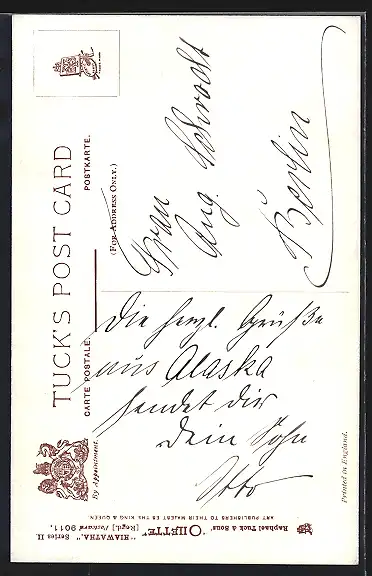 TUCK'S POST CARD
CARTE POSTALE.
POSTKARTE.
(FOR ADDRESS ONLY.)
By Appointment.
Frau
Aug. Schrodt
Berlin
Die herzl. Grüße
aus Alaska
sendet dir
Dein Sohn
Otto
Raphael Tuck & Sons' "OILETTE"
[Regd.] Postcard 9011.
"HIAWATHA." SERIES II.
ART PUBLISHERS TO THEIR MAJESTIES THE KING & QUEEN.
Printed in England.